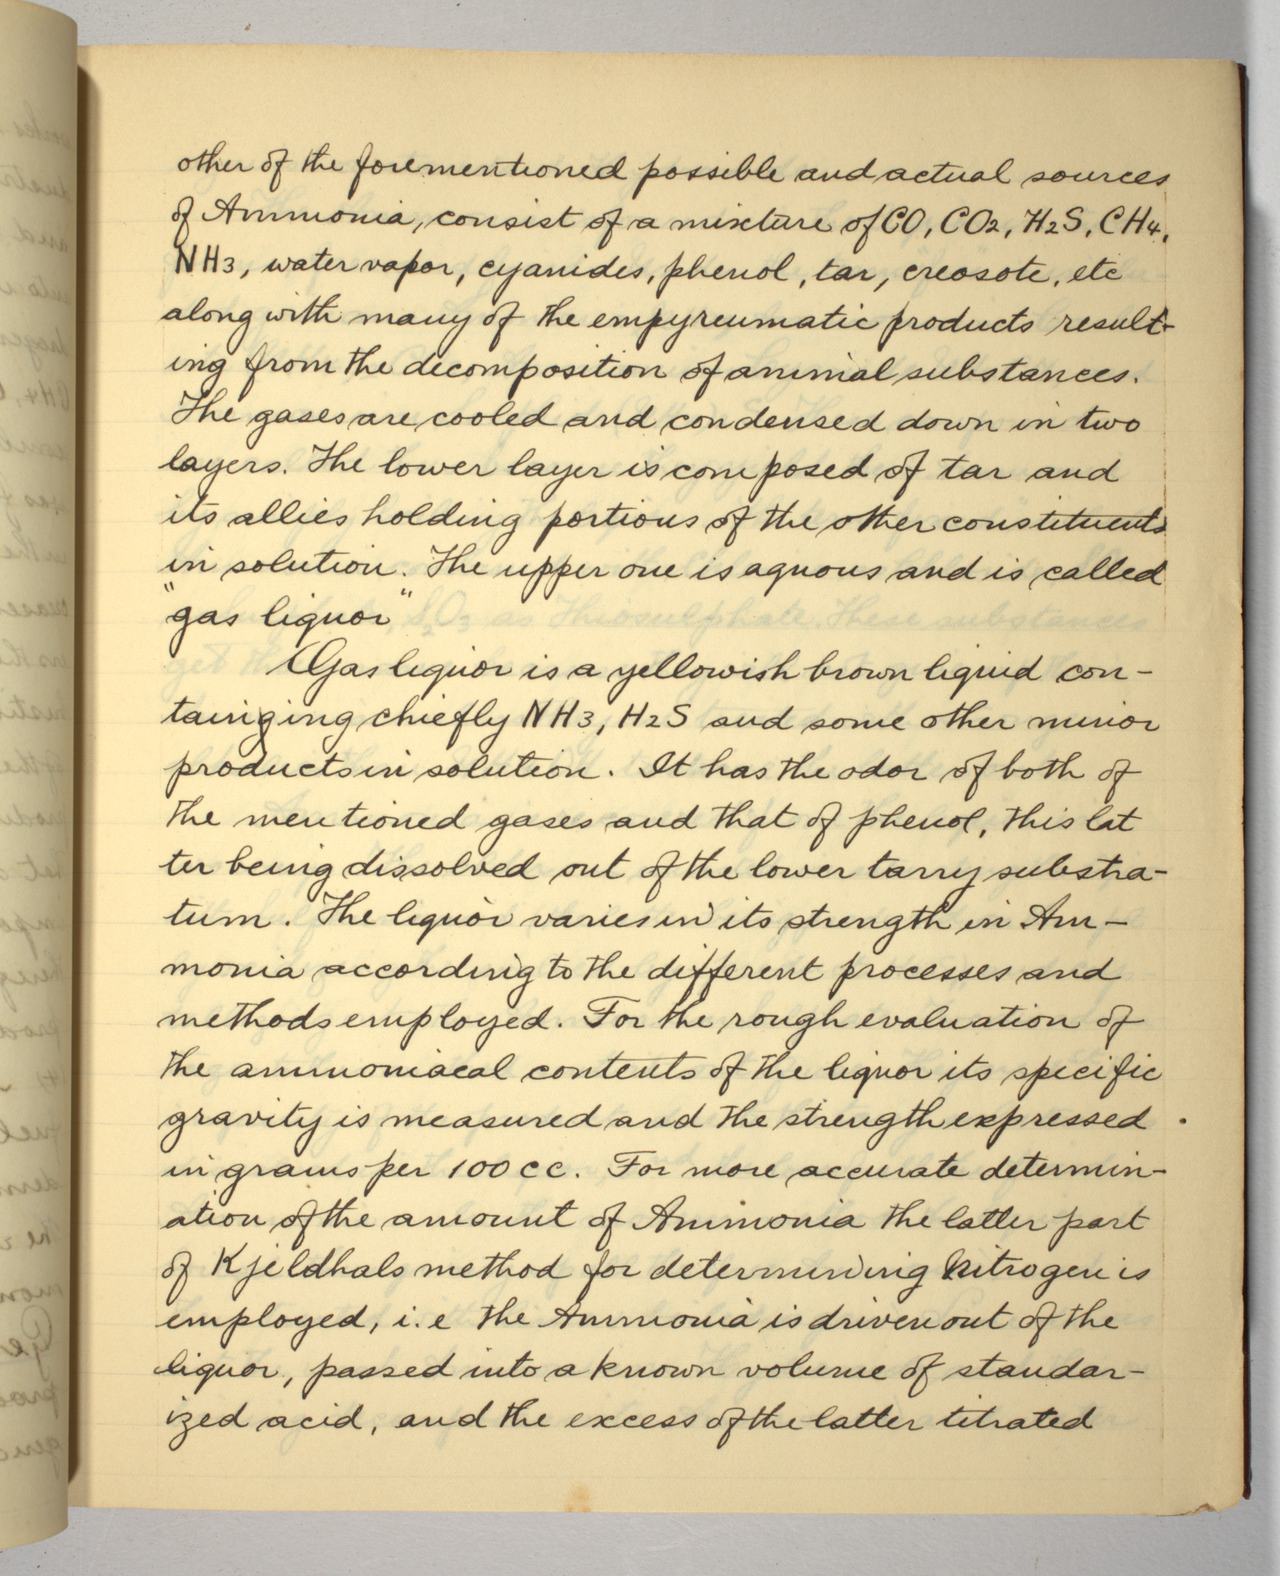 other of the forementioned possible and actual sources
of Ammonia, consist of a mixture of CO, CO2, H2S, CH4,
NH3, water vapor, cyanides, phenol, tar, creosote, etc
along with many of the empyreumatic products result-
ing from the decomposition of animal substances.
The gases are cooled and condensed down in two
layers. The lower layer is composed of tar and
its allies holding portions of the other constituents
in solution. The upper one is aquous and is called
"gas liquor"
Gas liquor is a yellowish brown liquid con-
tainging chiefly NH3, H2S and some other minor
products in solution. It has the odor of both of
the mentioned gases and that of phenol, this lat
ter being dissolved out of the lower tarry substra-
tum. The liquor varies in its strength in Am-
monia according to the different processes and
methods employed. For the rough evaluation of
the ammoniacal contents of the liquor its specific
gravity is measured and the strength expressed
in grams per 100 cc. For more accurate determin-
ation of the amount of Ammonia the latter part
of Kjeldhals method for determining Nitrogen is
employed, i.e the Ammonia is driven out of the
liquor, passed into a known volume of standar-
ized acid, and the excess of the latter titrated